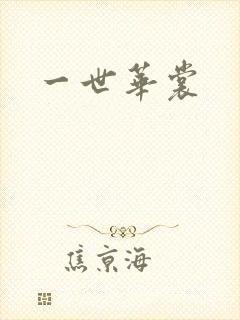 一世华裳
焦京海